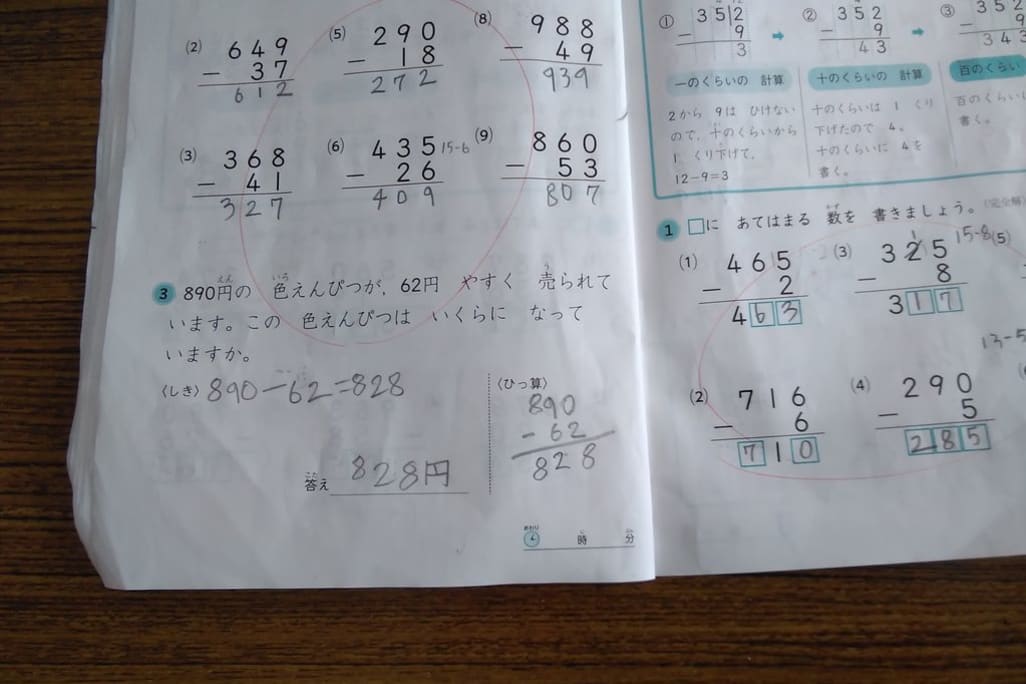 (2) 649
− 37
612
(5) 290
− 18
272
(8) 988
− 49
939
(3) 368
− 41
327
(6) 435 15-6
− 26
409
(9) 860
− 53
807
3 890円の 色えんぴつが、62円 やすく 売られて
います。この 色えんぴつは いくらに なって
いますか。
〈しき〉 890−62=828
答え 828円
〈ひっ算〉
890
− 62
828
おわり 時 分
① 352
− 9
3
② 352
− 9
43
③ 352
− 9
343
一のくらいの 計算
2から 9は ひけない
ので、十のくらいから
1 くり下げて、
12−9=3
十のくらいの 計算
十のくらいは 1 くり
下げたので 4。
十のくらいに 4を
書く。
百のくらい
百のくらい
書く。
1 □に あてはまる 数を 書きましょう。
(1) 465
− 2
463
(3) 325 15-8
− 8
317
(5)
13-5
(2) 716
− 6
710
(4) 290
− 5
285